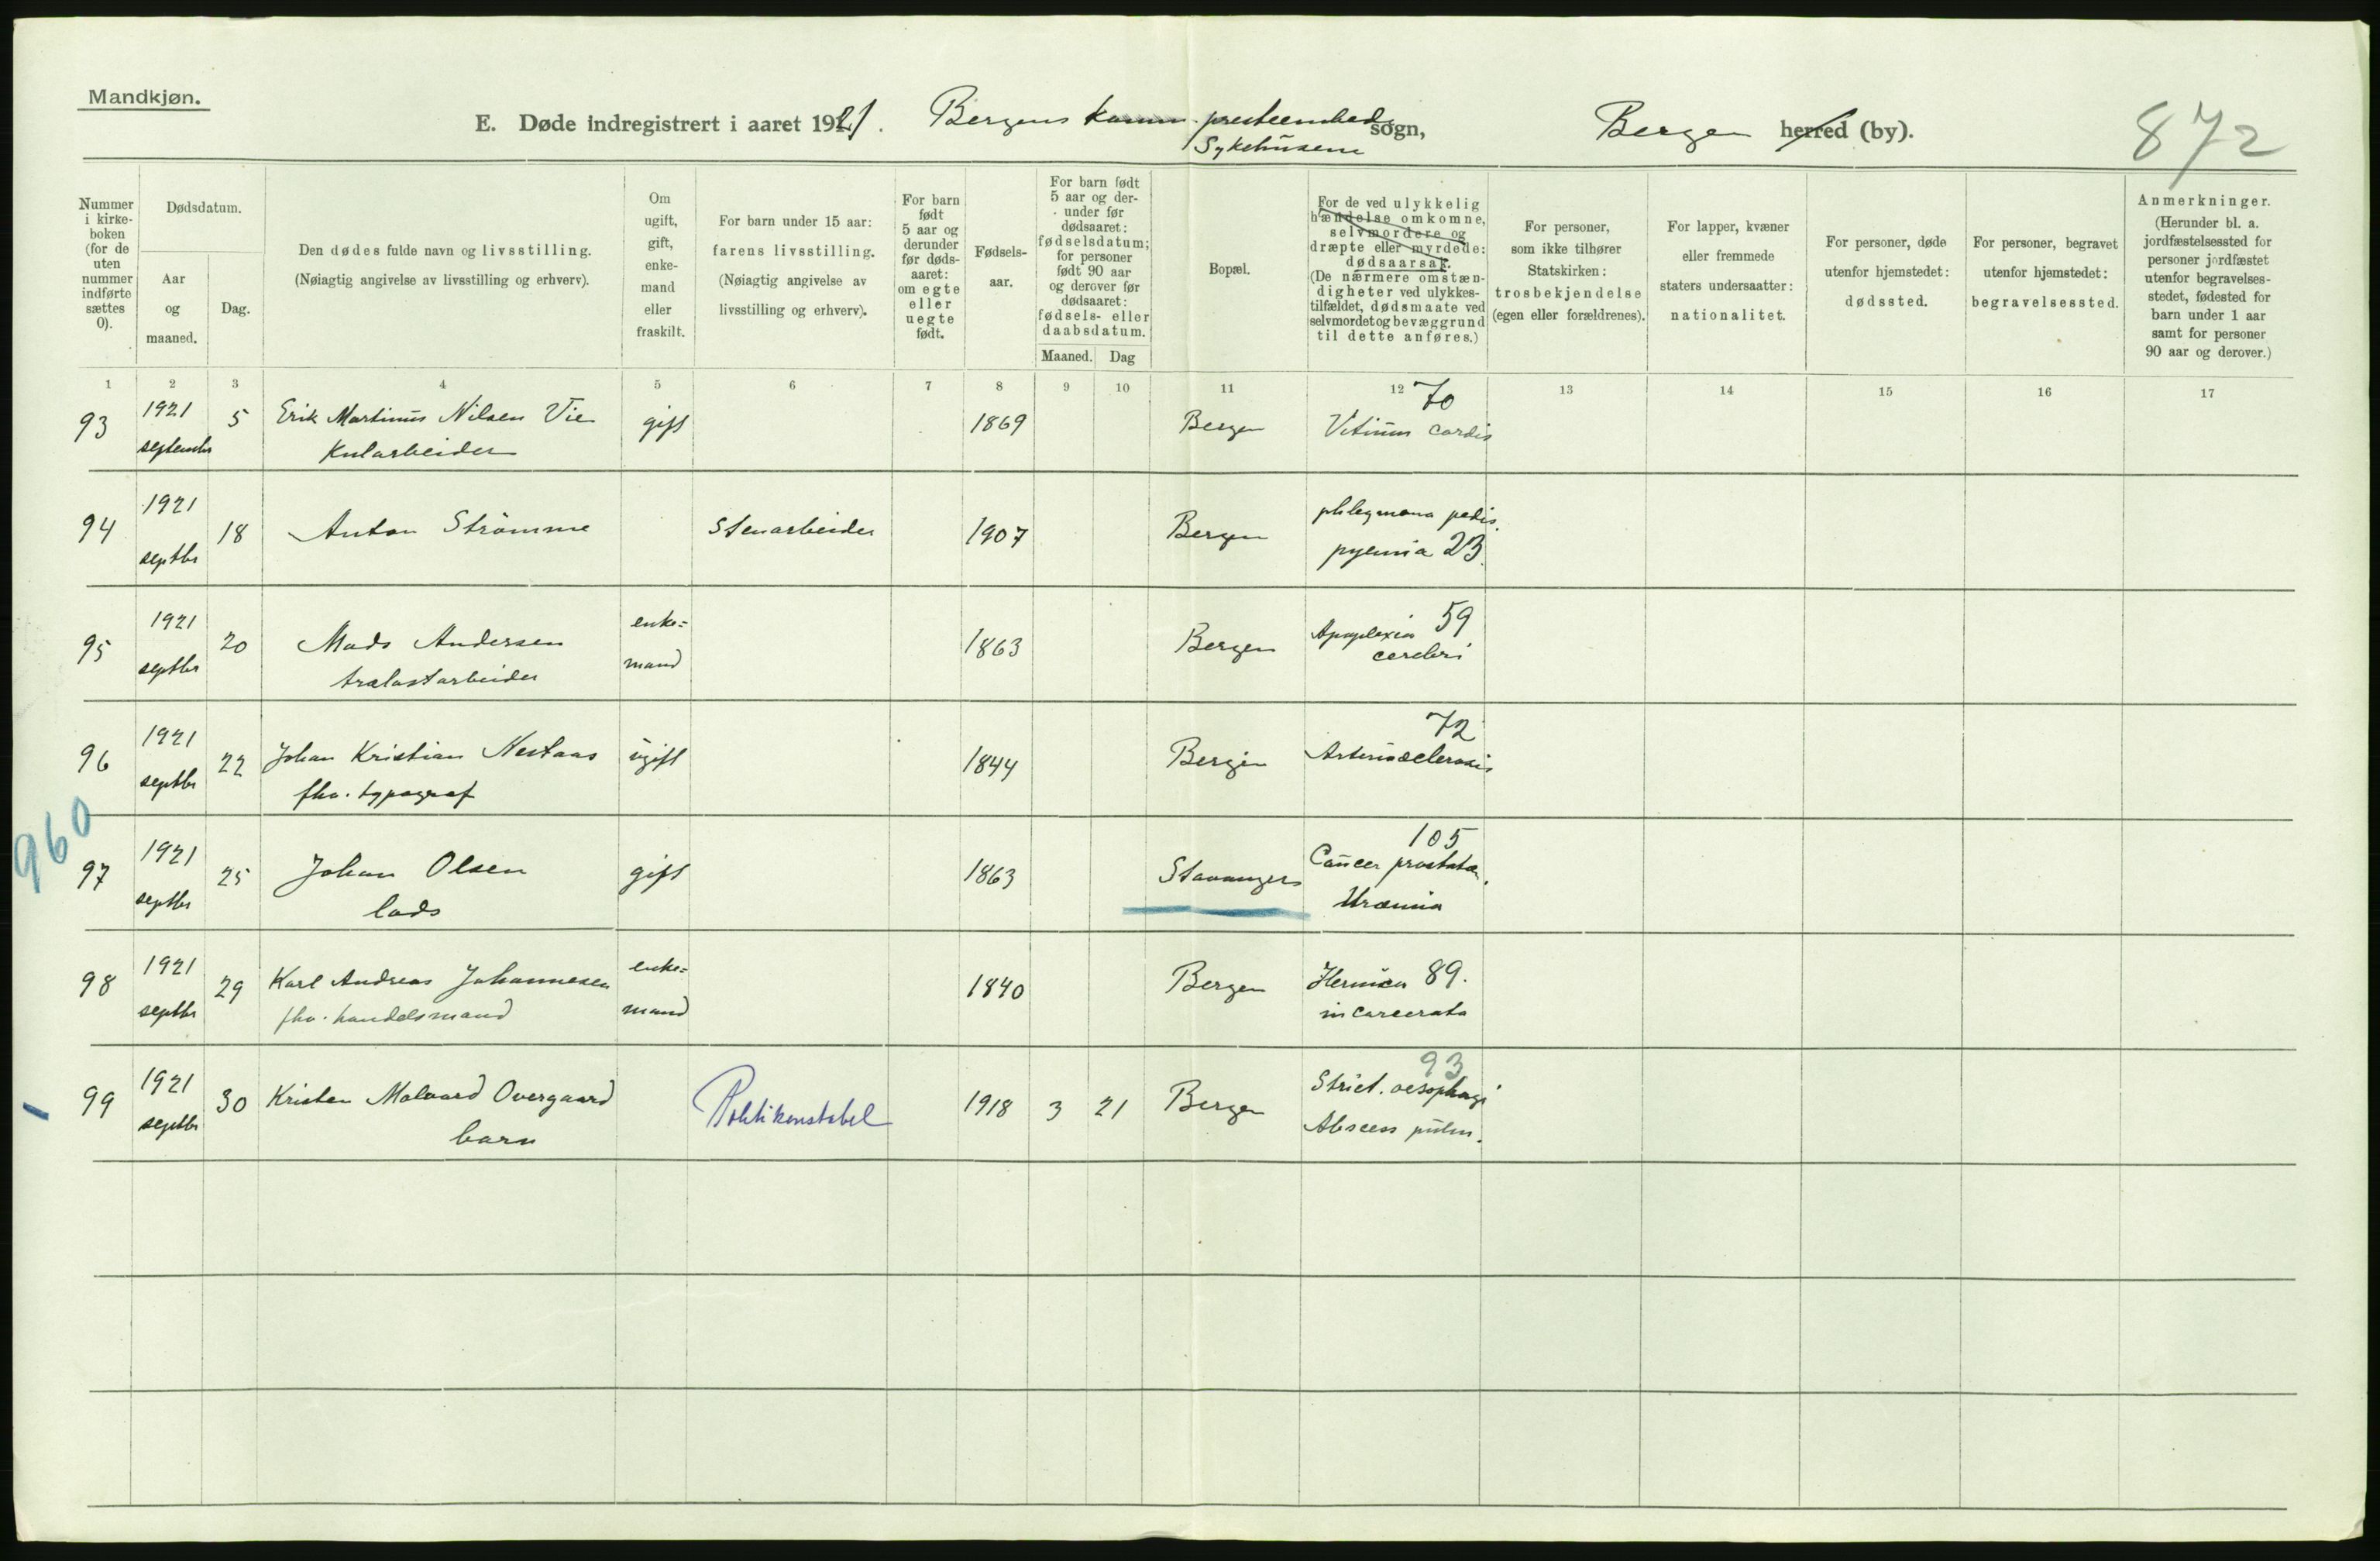 Mandkjøn.
E. Døde indregistrert i aaret 1921. Bergens komm. presteembed sogn, Bergen herred (by). 872
Sykehusene
Nummer i kirke-boken (for de uten nummer indførte sættes 0).
Dødsdatum.
Aar og maaned.
Dag.
Den dødes fulde navn og livsstilling.
(Nøiagtig angivelse av livsstilling og erhverv).
Om ugift, gift, enke-mand eller fraskilt.
For barn under 15 aar:
farens livsstilling.
(Nøiagtig angivelse av livsstilling og erhverv).
For barn født 5 aar og derunder før døds-aaret: om egte eller uegte født.
Fødsels-aar.
For barn født 5 aar og der-under før dødsaaret: fødselsdatum; for personer født 90 aar og derover før dødsaaret: fødsels- eller daabsdatum.
Maaned. Dag
Bopæl.
For de ved ulykkelig hændelse omkomne, selvmordere og dræpte eller myrdede: dødsaarsak.
(De nærmere omstæn-digheter ved ulykkes-tilfældet, dødsmaate ved selvmordet og bevæggrund til dette anføres.)
For personer, som ikke tilhører Statskirken: trosbekjendelse (egen eller forældrenes).
For lapper, kvæner eller fremmede staters undersaatter: nationalitet.
For personer, døde utenfor hjemstedet: dødssted.
For personer, begravet utenfor hjemstedet: begravelsessted.
Anmerkninger.
(Herunder bl. a. jordfæstelsessted for personer jordfæstet utenfor begravelses-stedet, fødested for barn under 1 aar samt for personer 90 aar og derover.)
1 2 3 4 5 6 7 8 9 10 11 12 13 14 15 16 17
93 1921 september 5 Erik Martinus Nilsen Vie gift 1869 Bergen 70 Vitium cordis
Kularbeider
94 1921 septbr 18 Anton Strömme Stenarbeider 1907 Bergen phlegmona pedis.
pyemia 23.
95 1921 septbr 20 Mads Andersen enke=mand 1863 Bergen Apoplexia 59
trælastarbeider cerebri
96 1921 septbr 22 Johan Kristian Nestaas ugift 1844 Bergen 72 Arteriosclerosis
fhv. typograf
960
97 1921 septbr 25 Johan Olsen gift 1863 Stavangers 105 Cancer prostatæ.
lods Uræmia
98 1921 septbr 29 Karl Andreas Johannesen enke=mand 1840 Bergen Hernia 89.
fhv. handelsmand incarcerata
99 1921 septbr 30 Kristen Malvard Overgaard Politikonstabel 1918 3 21 Bergen 93 Strict. oesophagi
barn Abscess pulm.